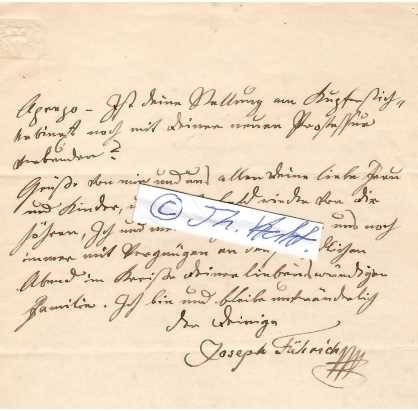 Apropo – Ist deine Stellung am Kupferstich-
kabinet noch mit deiner neuen Professur
verbunden?
Grüße von mir und uns allen deine liebe Frau
und Kinder, wieder von Dir
hören, Ich und uns noch
immer mit Vergnügen an den
Abend im Kreise deiner liebenswürdigen
Familie. Ich bin und bleibe unveränderlich
der Deinige
Joseph Führich
©